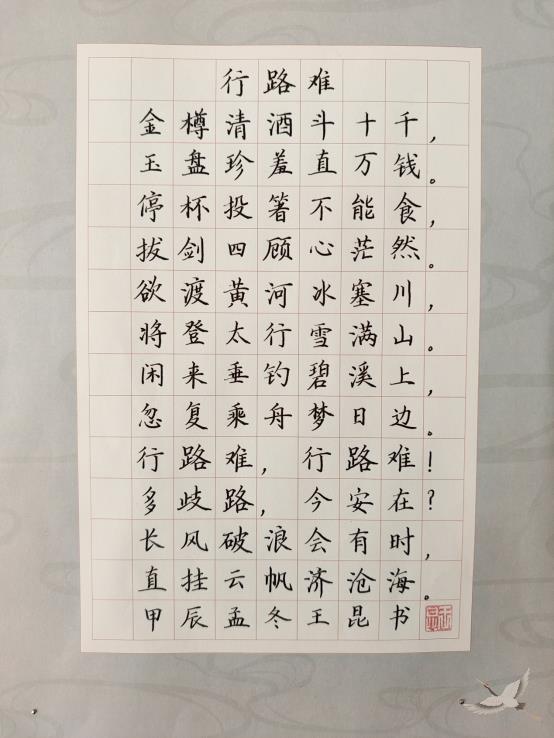 行路难
金樽清酒斗十千，
玉盘珍羞直万钱。
停杯投箸不能食，
拔剑四顾心茫然。
欲渡黄河冰塞川，
将登太行雪满山。
闲来垂钓碧溪上，
忽复乘舟梦日边。
行路难，行路难！
多歧路，今安在？
长风破浪会有时，
直挂云帆济沧海。
甲辰孟冬王昆书